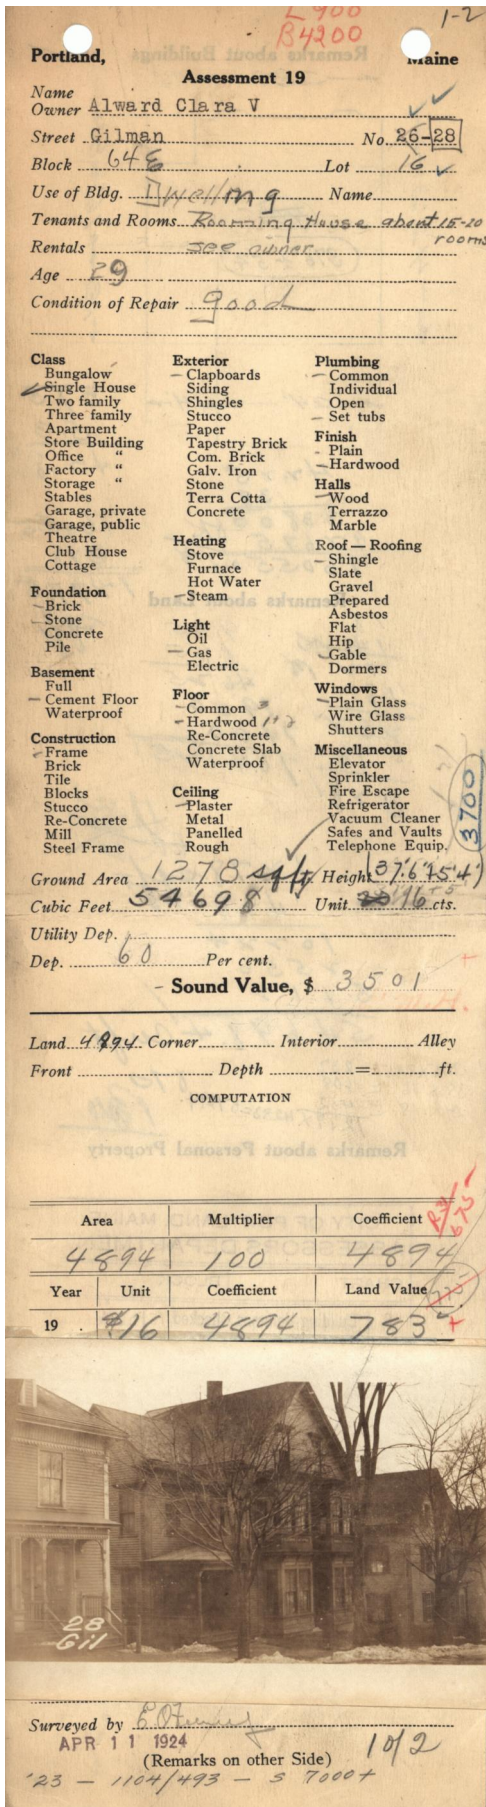 L 900
B4200
1-2
Portland, Maine
Assessment 19
Name
Owner Alward Clara V
Street Gilman No 26-28
Block 64E Lot 16
Use of Bldg. Dwelling Name
Tenants and Rooms Rooming House about 15-20 rooms
Rentals see owner
Age 29
Condition of Repair good
Class
Bungalow
Single House
Two family
Three family
Apartment
Store Building
Office "
Factory "
Storage "
Stables
Garage, private
Garage, public
Theatre
Club House
Cottage
Foundation
Brick
Stone
Concrete
Pile
Basement
Full
Cement Floor
Waterproof
Construction
Frame
Brick
Tile
Blocks
Stucco
Re-Concrete
Mill
Steel Frame
Exterior
Clapboards
Siding
Shingles
Stucco
Paper
Tapestry Brick
Com. Brick
Galv. Iron
Stone
Terra Cotta
Concrete
Heating
Stove
Furnace
Hot Water
Steam
Light
Oil
Gas
Electric
Floor
Common 3
Hardwood 1+2
Re-Concrete
Concrete Slab
Waterproof
Ceiling
Plaster
Metal
Panelled
Rough
Plumbing
Common
Individual
Open
Set tubs
Finish
Plain
Hardwood
Halls
Wood
Terrazzo
Marble
Roof — Roofing
Shingle
Slate
Gravel
Prepared
Asbestos
Flat
Hip
Gable
Dormers
Windows
Plain Glass
Wire Glass
Shutters
Miscellaneous
Elevator
Sprinkler
Fire Escape
Refrigerator
Vacuum Cleaner
Safes and Vaults
Telephone Equip.
3700
Ground Area 1278 sq ft Height (37'6"+5'4")
Cubic Feet 54698 Unit 16 cts.
Utility Dep.
Dep. 60 Per cent.
Sound Value, $ 3501
Land 4894 Corner Interior Alley
Front Depth = ft.
COMPUTATION
Area Multiplier Coefficient
4894 100 4894
Year Unit Coefficient Land Value
19 $.16 4894 783
28
Gil
Surveyed by
APR 11 1924
(Remarks on other Side)
1 of 2
'23 — 1104/493 — S 7000+